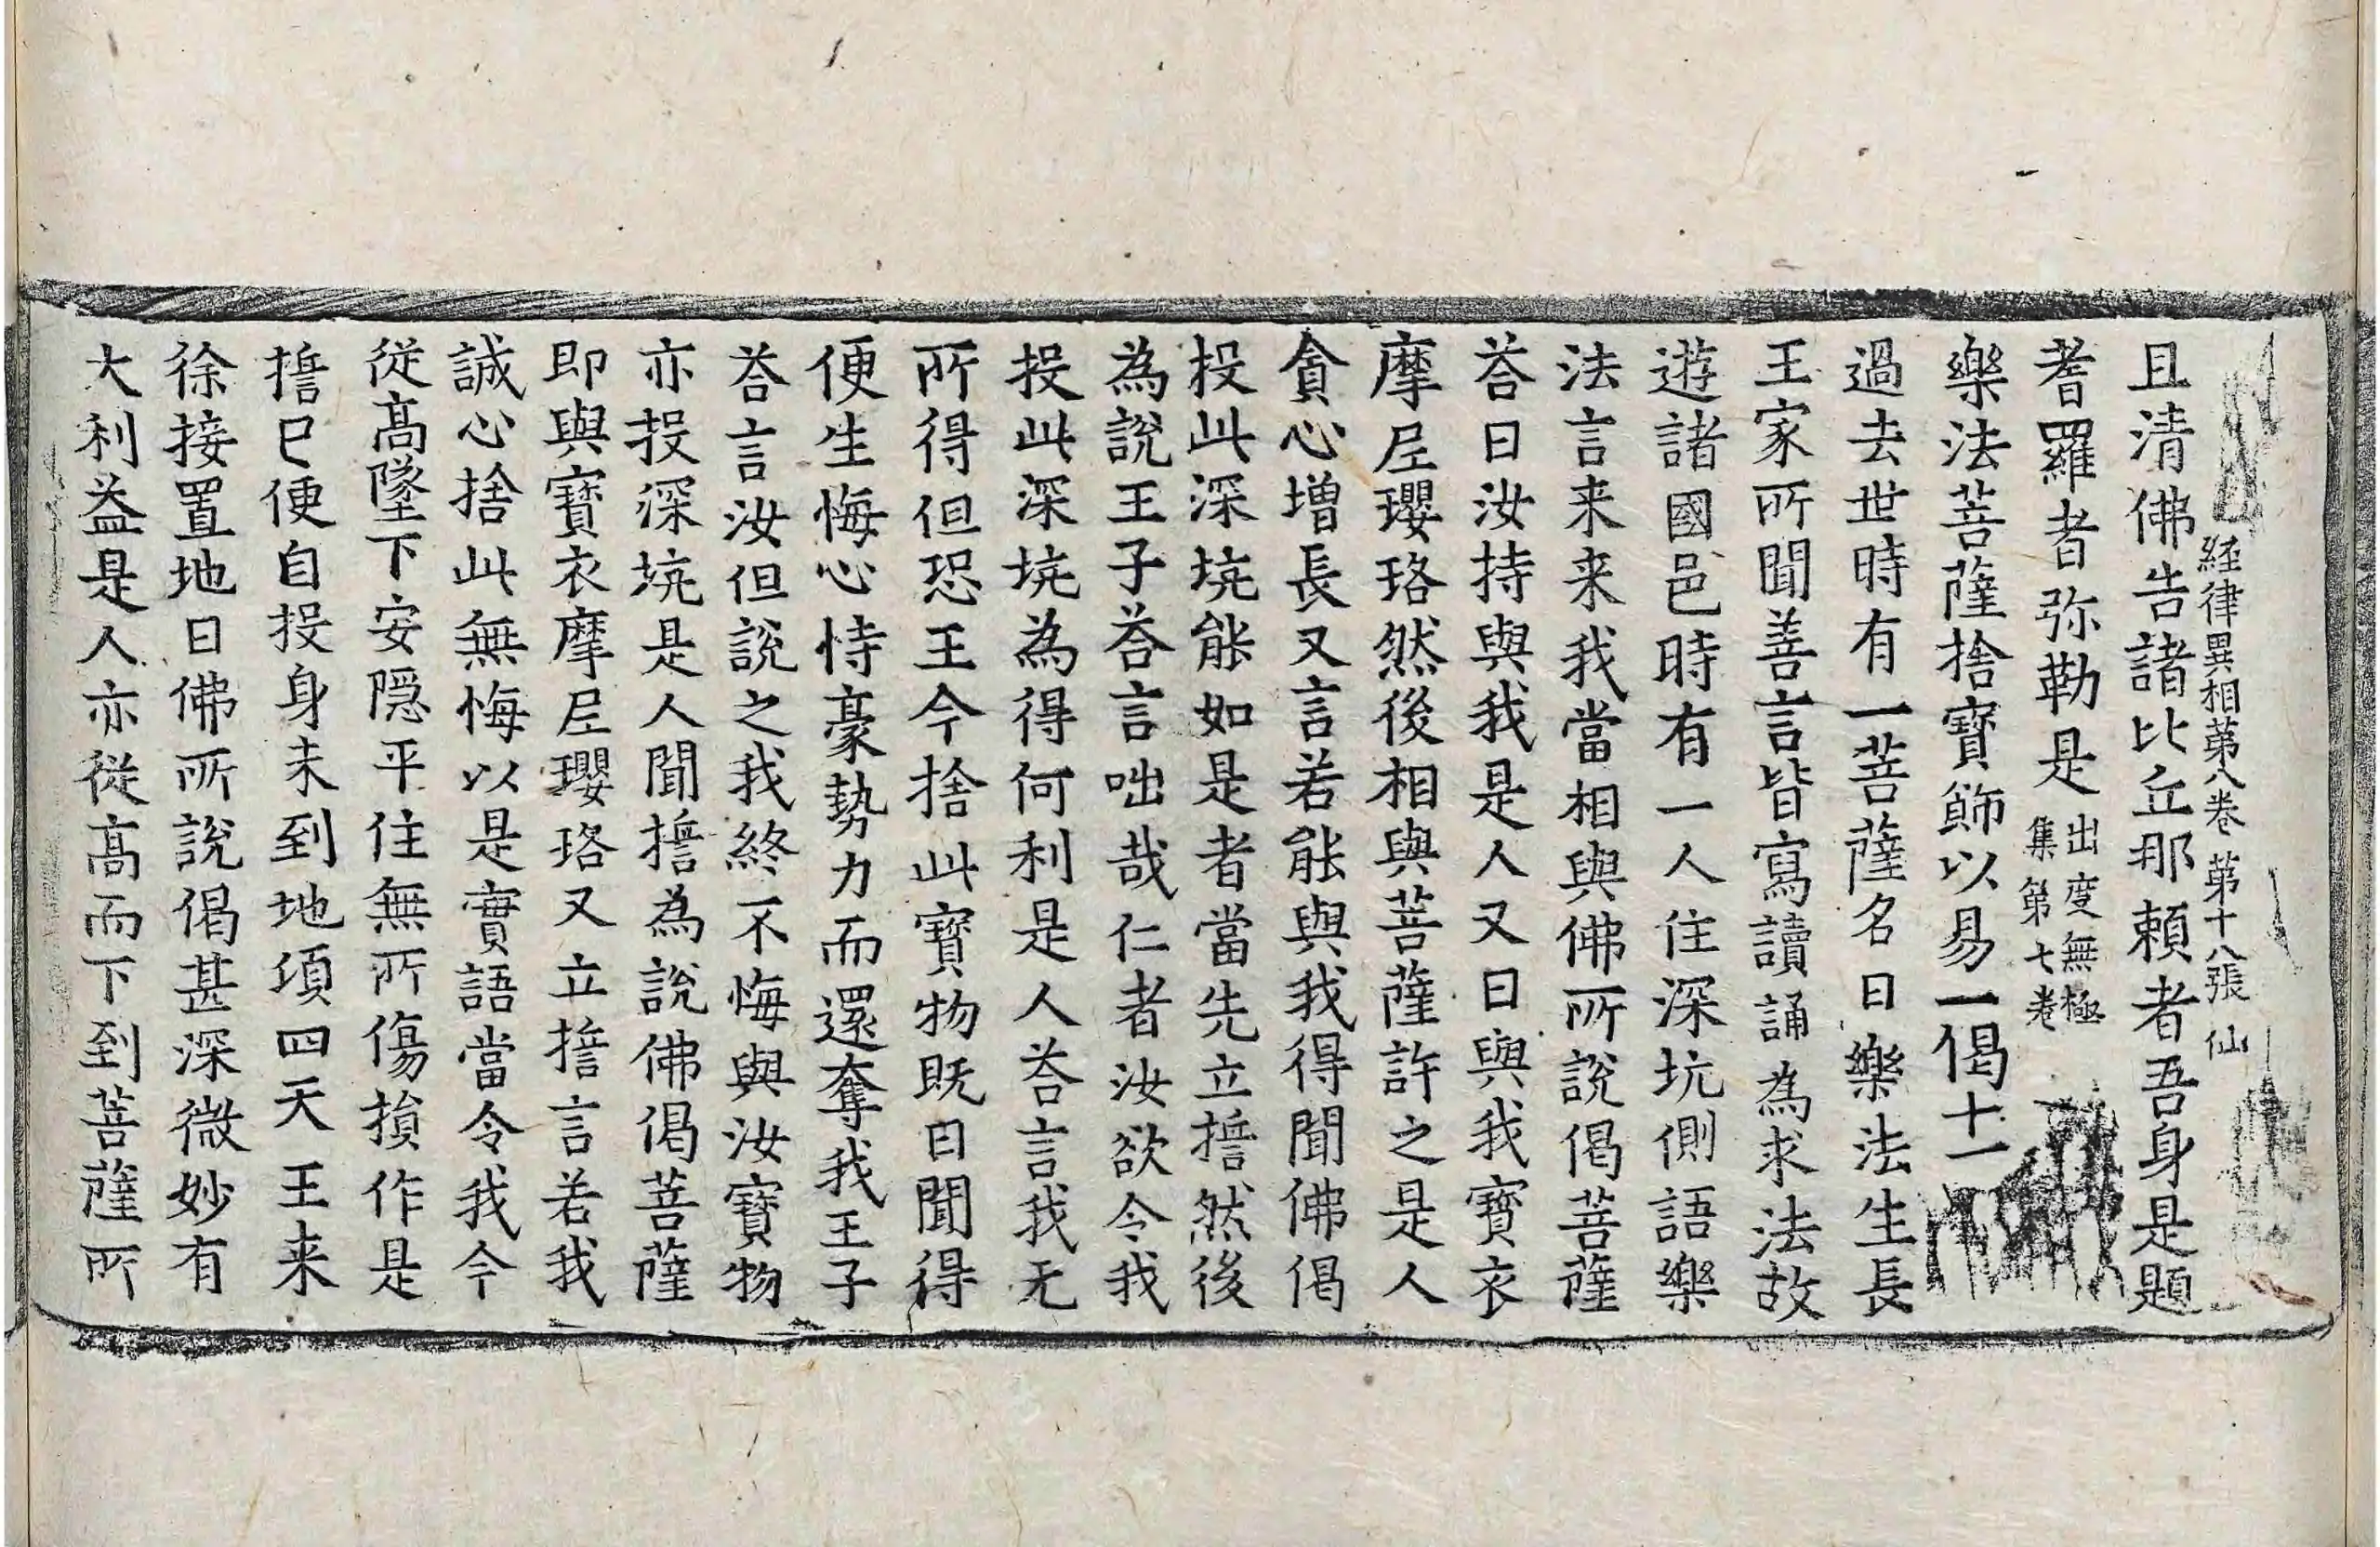 経律異相苐八巻 苐十八張 仙
且清佛告諸比丘那頼者吾身是題
耆羅者弥勒是出度無極集第七卷
樂法菩薩捨寶飾以易一偈十一
過去世時有一菩薩名曰樂法生長
王家所聞善言皆寫讀誦為求法故
遊諸國邑時有一人住深坑側語樂
法言来来我當相與佛所說偈菩薩
荅曰汝持與我是人又曰與我寶衣
摩𡰱瓔珞然後相與菩薩許之是人
貪心增長又言若能與我得聞佛偈
投此深坑能如是者當先立誓然後
為說王子荅言咄哉仁者汝欲令我
投此深坑為得何利是人荅言我无
所得但恐王今捨此寶物既曰聞得
便生悔心恃豪勢力而還奪我王子
荅言汝但說之我終不悔與汝寶物
亦投深坑是人聞誓為說佛偈菩薩
即與寶衣摩𡰱瓔珞又立誓言若我
誠心捨此無悔以是實語當令我今
從髙墜下安隠平住無所傷損作是
誓已便自投身未到地頃四天王来
徐接置地曰佛所說偈甚深微妙有
大利益是人亦從髙而下到菩薩所